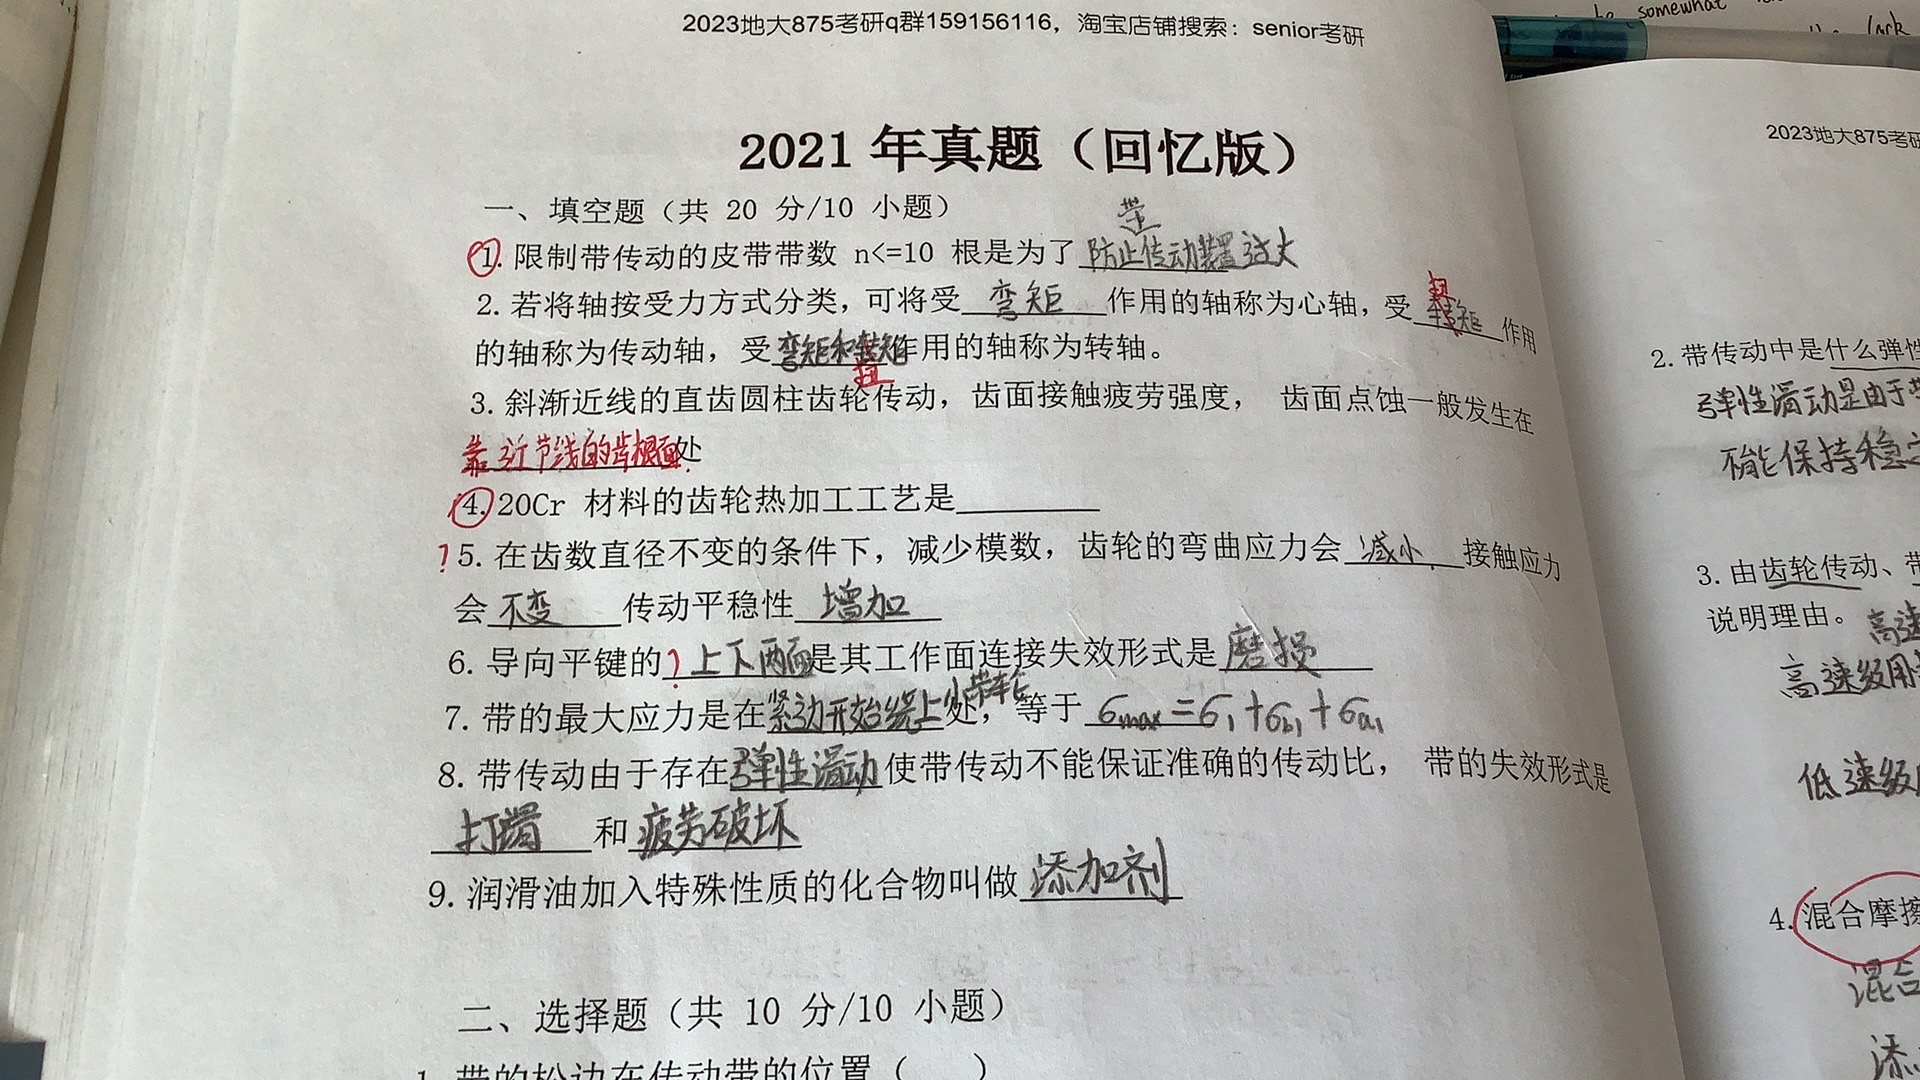 be somewhat
lack
2023地大875考研q群159156116，淘宝店铺搜索：senior考研
2021 年真题（回忆版）
一、填空题（共 20 分/10 小题）
带
①. 限制带传动的皮带带数 n<=10 根是为了 防止传动装置过大
2. 若将轴按受力方式分类，可将受 弯矩 作用的轴称为心轴，受 扭 转矩 作用
的轴称为传动轴，受 弯矩和转矩 作用的轴称为转轴。
扭
3. 斜渐近线的直齿圆柱齿轮传动，齿面接触疲劳强度， 齿面点蚀一般发生在
靠近节线的齿根面处
④. 20Cr 材料的齿轮热加工工艺是
? 5. 在齿数直径不变的条件下，减少模数，齿轮的弯曲应力会 减小. 接触应力
会 不变 传动平稳性 增加
6. 导向平键的 ? 上下两面是其工作面连接失效形式是 磨损
7. 带的最大应力是在紧边开始绕上小带轮处，等于 σmax=σ1+σb1+σa1
8. 带传动由于存在弹性滑动使带传动不能保证准确的传动比， 带的失效形式是
打滑 和 疲劳破坏
9. 润滑油加入特殊性质的化合物叫做 添加剂
二、选择题（共 10 分/10 小题）
1. 带的松边在传动带的位置（ ）
2023地大875考研
2. 带传动中是什么弹性
弹性滑动是由于
不能保持稳定
3. 由齿轮传动、带
说明理由。 高速
高速级用
低速级
4. 混合摩擦
混合
添